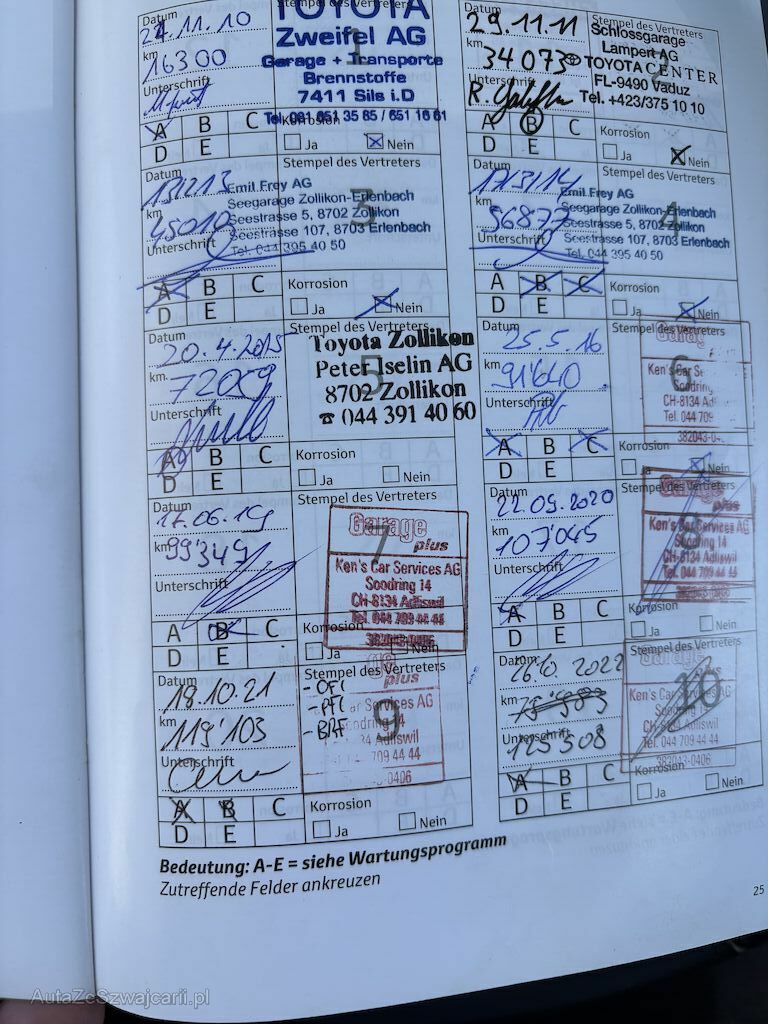 Datum
24.11.10
km
16300
Unterschrift
TOYOTA
Zweifel AG
Garage + Transporte
Brennstoffe
7411 Sils i.D
Tel. 081 651 35 85 / 651 16 61
1
A B C
D E
Korrosion
Ja Nein
Datum
29.11.11
km
34073
Unterschrift
Stempel des Vertreters
Schlossgarage
Lampert AG
TOYOTA CENTER
FL-9490 Vaduz
Tel. +423/375 10 10
A B C
D E
Korrosion
Ja Nein
Datum
km
45010
Unterschrift
Stempel des Vertreters
Emil Frey AG
Seegarage Zollikon-Erlenbach
Seestrasse 5, 8702 Zollikon
Seestrasse 107, 8703 Erlenbach
Tel. 044 395 40 50
3
A B C
D E
Korrosion
Ja Nein
Datum
17/3/14
km
56877
Unterschrift
Stempel des Vertreters
Emil Frey AG
Seegarage Zollikon-Erlenbach
Seestrasse 5, 8702 Zollikon
Seestrasse 107, 8703 Erlenbach
Tel. 044 395 40 50
4
A B C
D E
Korrosion
Ja Nein
Datum
20.4.2015
km
72059
Unterschrift
Stempel des Vertreters
Toyota Zollikon
Peter Iselin AG
8702 Zollikon
☎ 044 391 40 60
5
A B C
D E
Korrosion
Ja Nein
Datum
25.5.16
km
91'640
Unterschrift
Stempel des Vertreters
Garag
Ken's Car Se
Soodring
CH-8134 Adl
Tel. 044 709
382043-0
6
A B C
D E
Korrosion
Ja Nein
Datum
17.06.19
km
99'349
Unterschrift
Stempel des Vertreters
Garage
plus
Ken's Car Services AG
Soodring 14
CH-8134 Adliswil
Tel. 044 709 44 44
382043-0406
7
A B C
D E
Korrosion
Ja Nein
Datum
22.09.2020
km
107'045
Unterschrift
Stempel des Vertreters
Garage
plus
Ken's Car Services AG
Soodring 14
CH-8134 Adliswil
Tel. 044 709 44 44
382043-0406
A B C
D E
Korrosion
Ja Nein
Datum
18.10.21
km
119'103
Unterschrift
Stempel des Vertreters
plus
ar Services AG
odring 14
34 Adliswil
709 44 44
-0406
9
A B C
D E
Korrosion
Ja Nein
Datum
26.10.2022
km
125'308
Unterschrift
Stempel des Vertreters
Garage
plus
Ken's Car Services AG
Soodring 14
CH-8134 Adliswil
Tel. 044 709 44 44
382043-0406
10
A B C
D E
Korrosion
Ja Nein
Bedeutung: A-E = siehe Wartungsprogramm
Zutreffende Felder ankreuzen
25
AutaZeSzwajcarii.pl